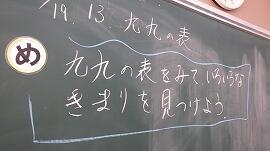 19.13 九九の表
め
九九の表をみて、いろいろな
きまりを見つけよう。